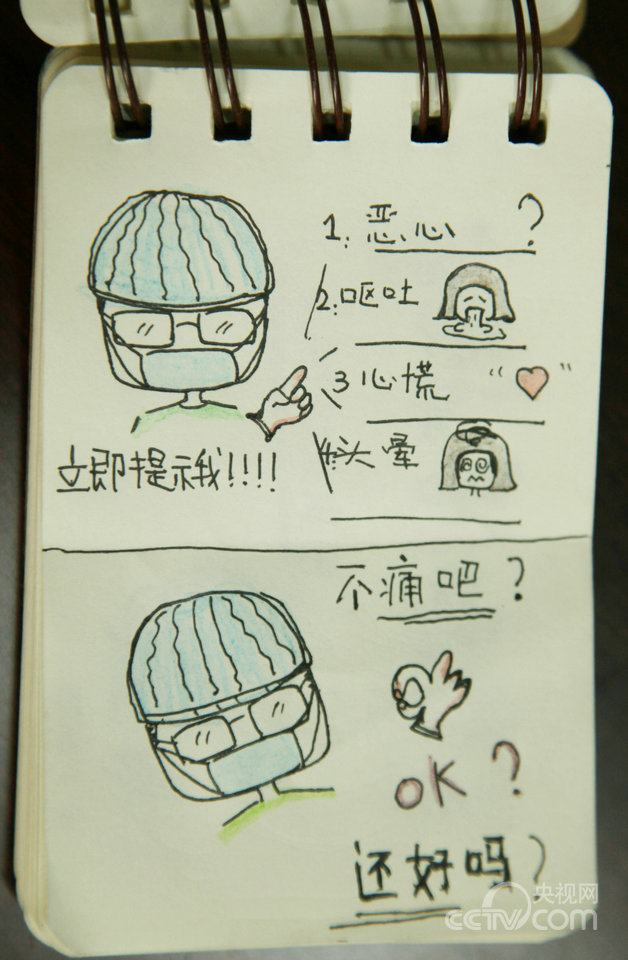 1. 恶心 ?
2. 呕吐
3 心慌 “ ”
4. 头晕
立即提示我!!!!
不痛吧?
OK?
还好吗?
央视网
CCTV.com